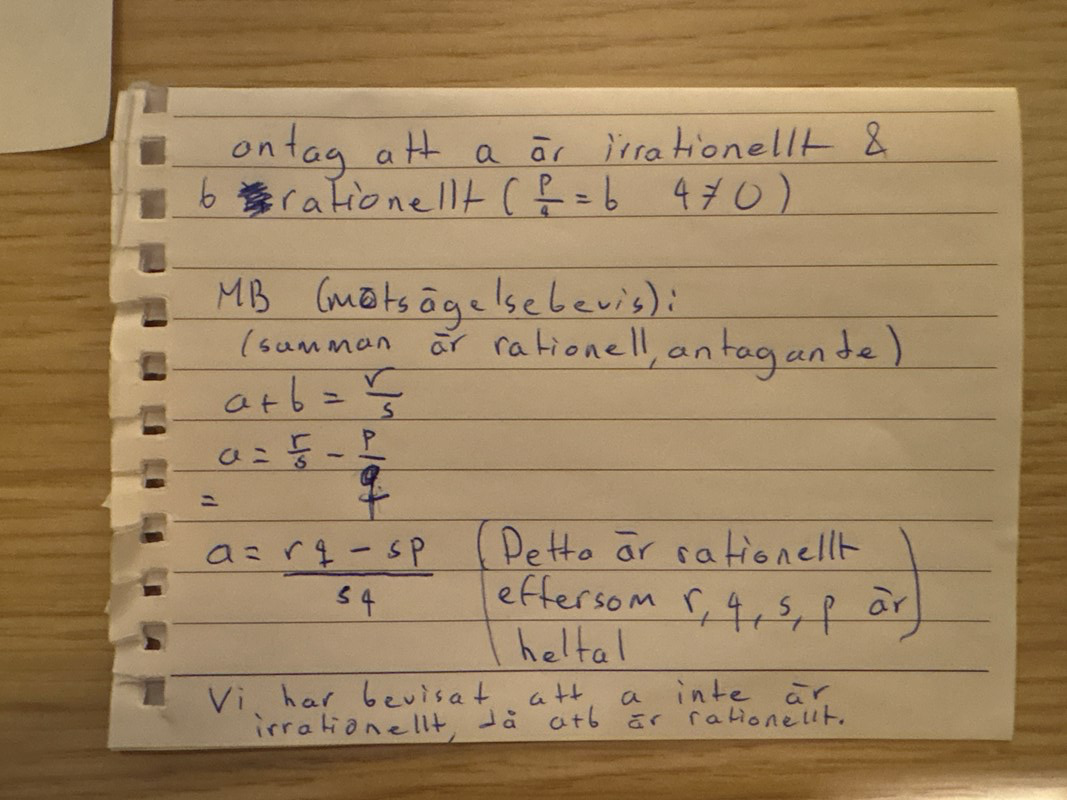 antag att a är irrationellt &
b rationellt ( p/q = b q ≠ 0 )
MB (motsägelsebevis):
(summan är rationell, antagande)
a + b = r/s
a = r/s - p/q
=
a = (rq - sp)/sq (Detta är rationellt
eftersom r, q, s, p är)
heltal
Vi har bevisat att a inte är
irrationellt, då a+b är rationellt.